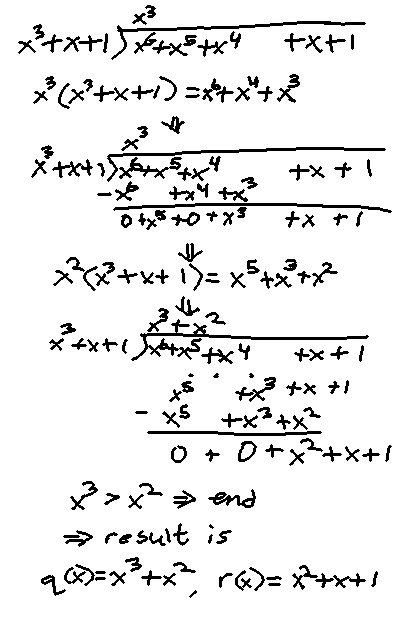 x³
x³+x+1)x⁶+x⁵+x⁴ +x+1
x³(x³+x+1)=x⁶+x⁴+x³
⇓
x³
x³+x+1)x⁶+x⁵+x⁴ +x+1
-x⁶ +x⁴+x³
0+x⁵+0+x³ +x+1
⇓
x²(x³+x+1)=x⁵+x³+x²
⇓
x³+x²
x³+x+1)x⁶+x⁵+x⁴ +x+1
. . .
x⁵ +x³+x+1
- x⁵ +x³+x²
0 + 0+x²+x+1
x³>x² ⇒ end
⇒ result is
q(x)=x³+x², r(x)=x²+x+1